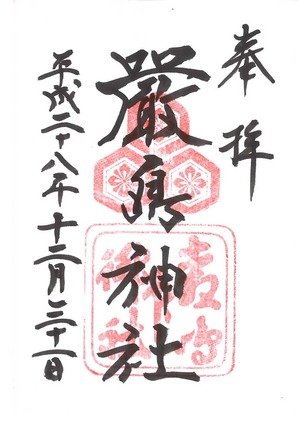 奉拝
嚴島神社
平成二十八年十二月三十一日